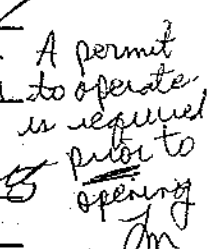 A permit
to operate
is required
prior to
opening